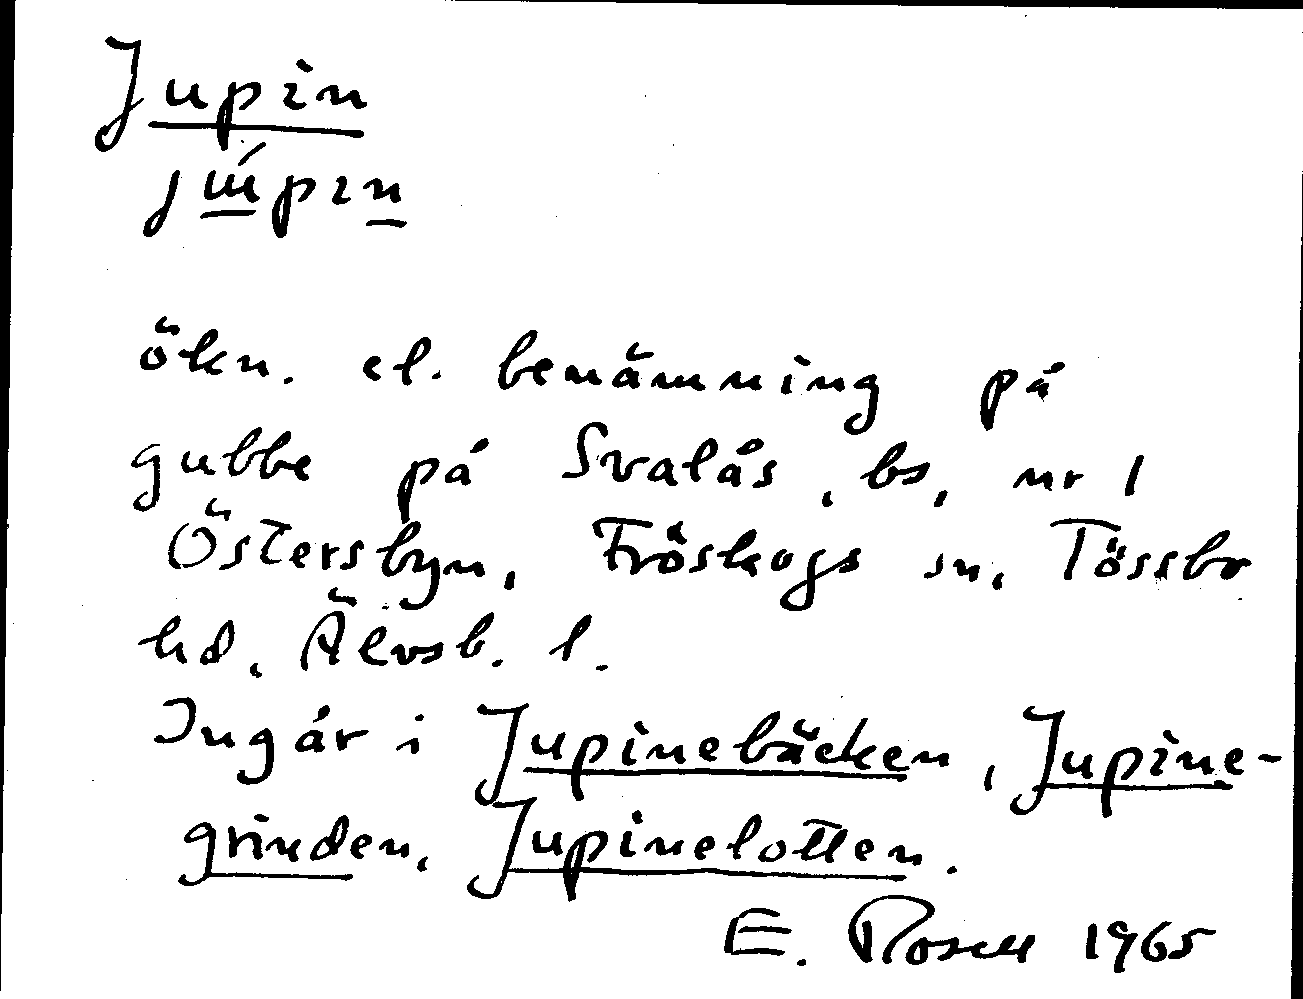 Jupin
júpin
ökn. el. benämning på
gubbe på Svalås, bs, nr 1
Östersbyn, Fröskogs sn, Tössbo
hd, Älvsb. l.
Ingår i Jupinebäcken, Jupine-
grinden, Jupinelotten.
E. Rosell 1965